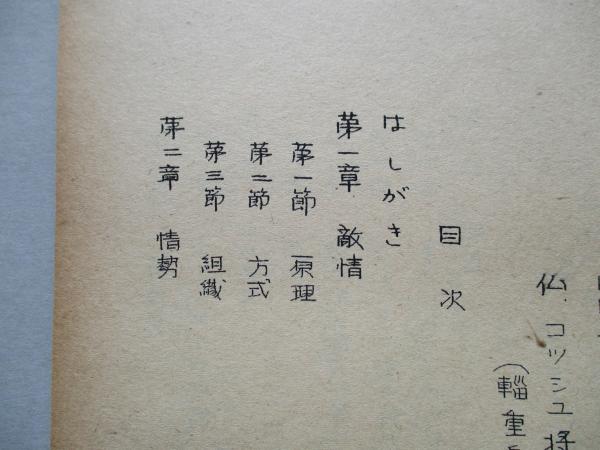 仏.コッシュ将
(輜重
目次
はしがき
第一章 敵情
第一節 原理
第二節 方式
第三節 組織
第二章 情勢